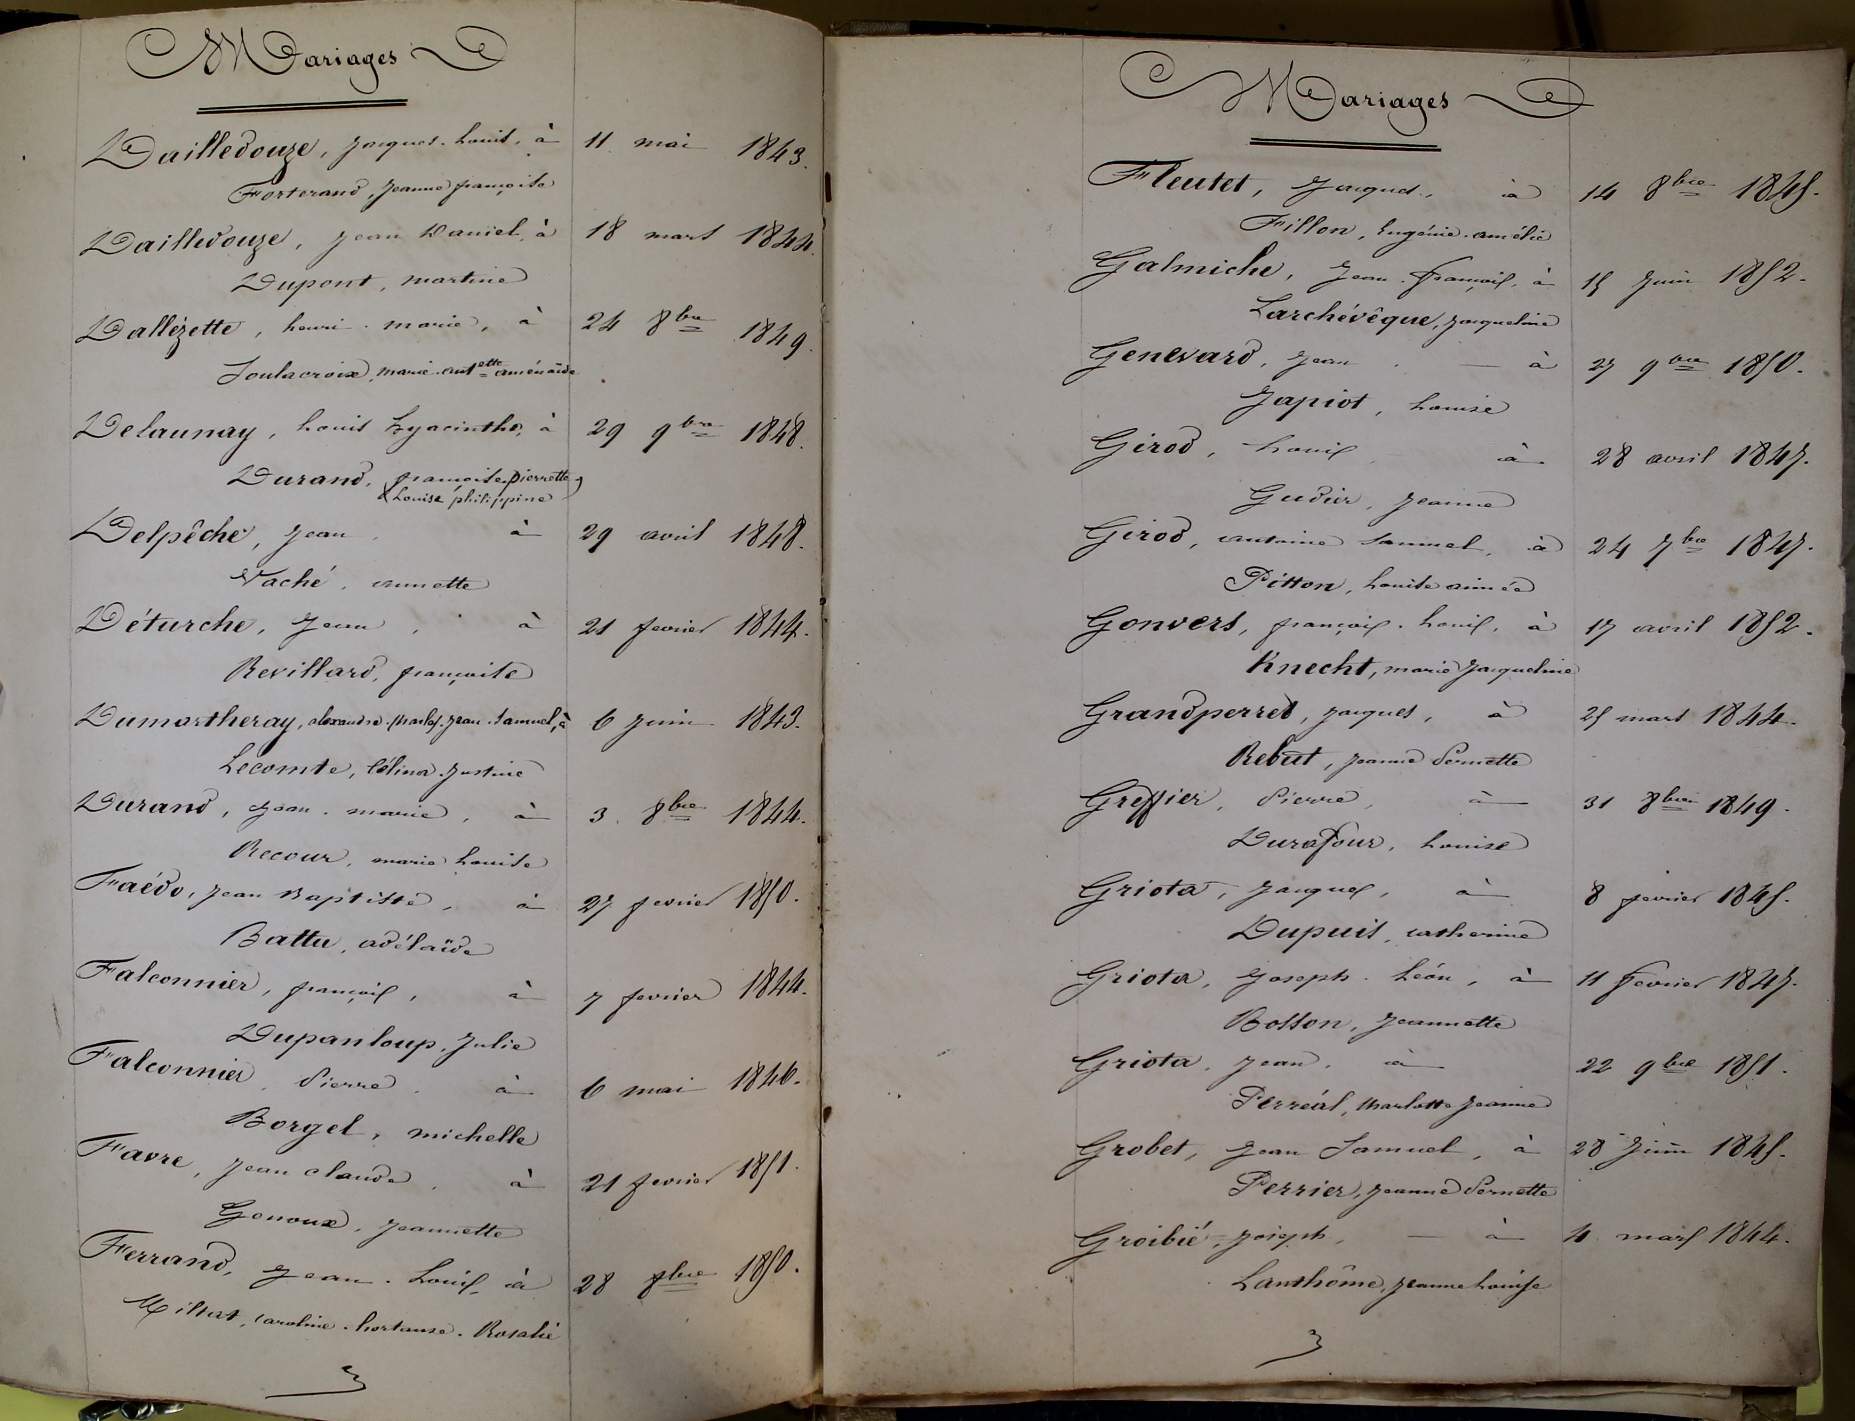 Mariages
Dailledouze, Jacques. Louis, à 11 mai 1843.
Forterand, Jeanne françoise
Dailledouze, Jean Daniel, à 18 mars 1844.
Dupont, martine
Dallézette, henri. marie, à 24 8bre 1849.
Soulacroix, marie. antette aménaïde
Delaunay, Louis hyacinthe, à 29 9bre 1848.
Durand, françoise. pierrette
& Louise philippine
Delpêche, Jean à 29 avril 1848.
Vaché, annette
Déturche, Jean, à 21 fevrier 1844.
Revillard, françoise
Dumartheray, alexandre. Charles. Jean. Samuel, à 6 juin 1843.
Lecomte, Célina Justine
Durand, Jean. marie, à 3. 8bre 1844.
Recour, marie Louise
Faédo, Jean Baptiste, à 27 fevrier 1850.
Battu, adélaïde
Falconnier, françois, à 7 fevrier 1844.
Dupanloup, Julie
Falconnier, Pierre, à 6 mai 1846.
Borgel, michelle
Favre, Jean claude, à 21 fevrier 1851.
Genoux, Jeannette
Ferrand, Jean. Louis, à 28 1850.
caroline. hortanse. Rosalie
Mariages
Fleutet, Jacques, à 14 8bre 1845.
Fillon, Eugénie. amélie
Galmiche, Jean. françois, à 15 Juin 1852.
Larchévêque, Jacqueline
Genevard, Jean. — à 27 9bre 1850.
Japiot, Louise
Girod, Louis à 28 avril 1847.
Gudier, Jeanne
Girod, antoine Samuel, à 24 7bre 1847.
Pitton, Louise aimée
Gonvers, françois. Louis, à 17 avril 1852.
Knecht, marie Jacqueline
Grandperret, Jacques, à 25 mars 1844.
Rebut, Jeanne Pernette
Greffier, Pierre, à 31 8bre 1849.
Durafour, Louise
Griota, Jacques, à 8 fevrier 1845.
Dupuis, catherine
Griota, Joseph. Léon, à 11 fevrier 1847.
Bosson, Jeannette
Griota, Jean, à 22 9bre 1851.
Perréal, Charlotte Jeanne
Grobet, Jean Samuel, à 28 Juin 1845.
Perrier, Jeanne Pernette
Groibié, Joseph, — à 4 mars 1844.
Lanthôme, Jeanne Louise